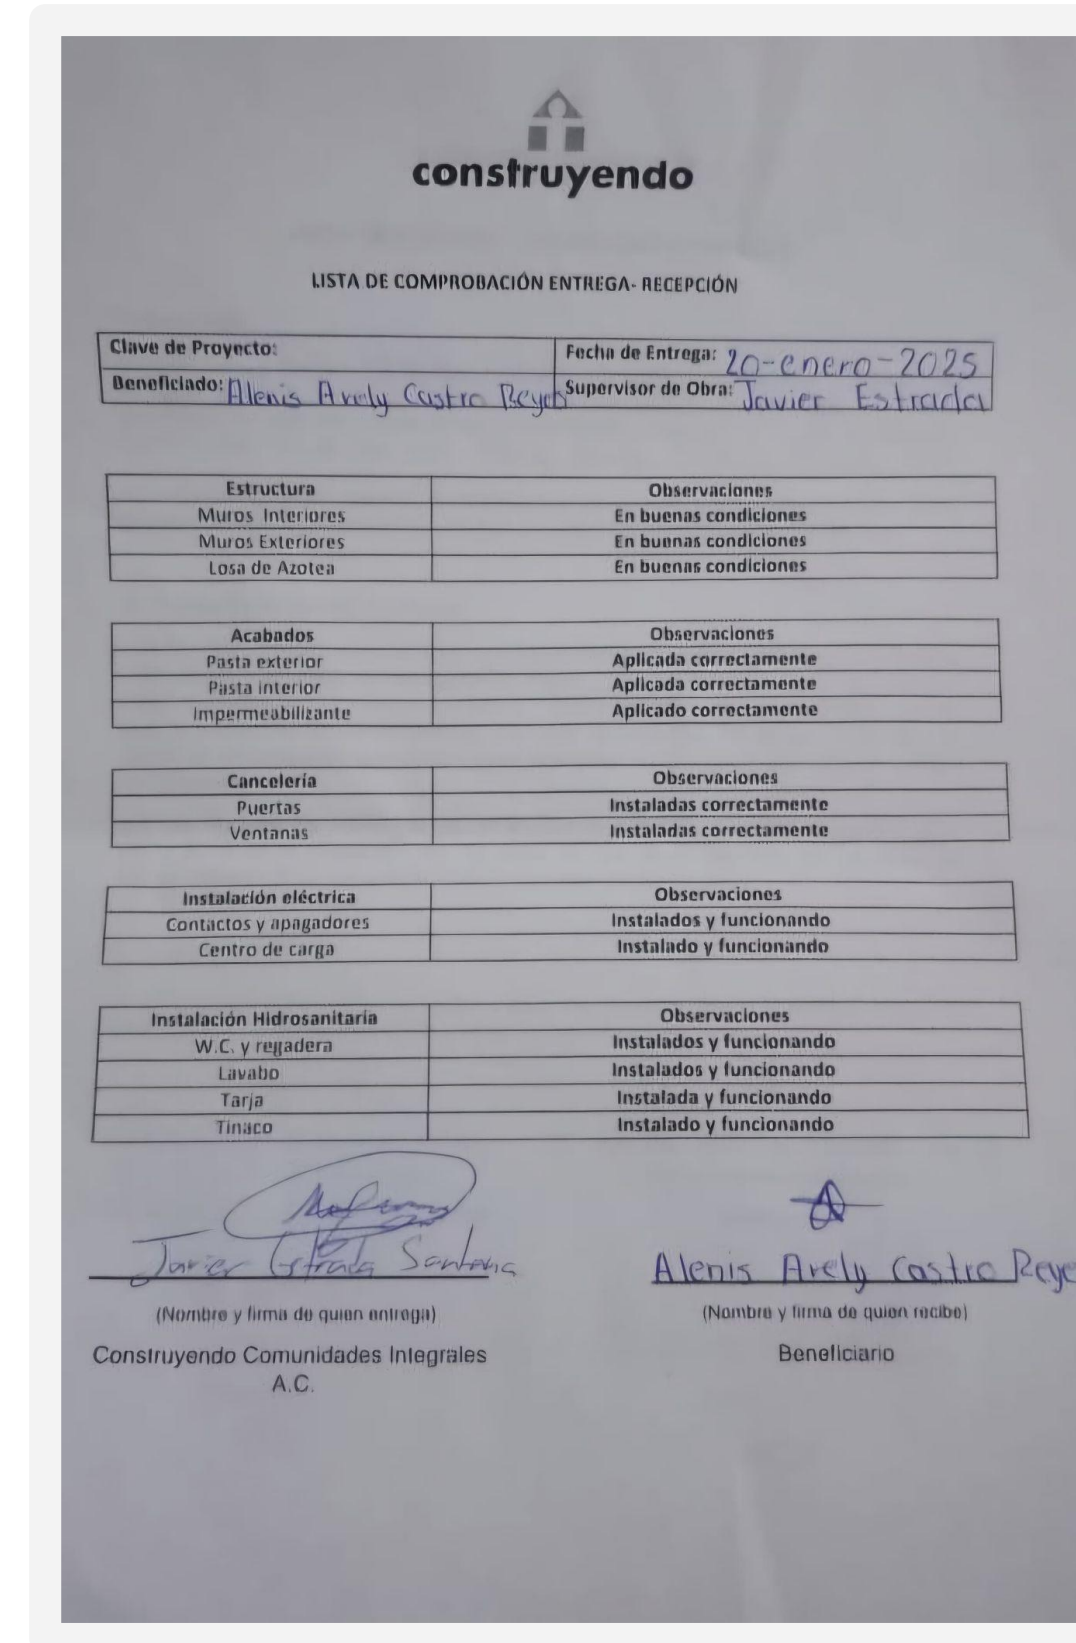 construyendo
LISTA DE COMPROBACIÓN ENTREGA- RECEPCIÓN
Clave de Proyecto: Fecha de Entrega: 20-enero-2025
Beneficiado: Alenis Arely Castro Reyes Supervisor de Obra: Javier Estrada
Estructura Observaciones
Muros Interiores En buenas condiciones
Muros Exteriores En buenas condiciones
Losa de Azotea En buenas condiciones
Acabados Observaciones
Pasta exterior Aplicada correctamente
Pasta interior Aplicada correctamente
Impermeabilizante Aplicado correctamente
Cancelería Observaciones
Puertas Instaladas correctamente
Ventanas Instaladas correctamente
Instalación eléctrica Observaciones
Contactos y apagadores Instalados y funcionando
Centro de carga Instalado y funcionando
Instalación Hidrosanitaria Observaciones
W.C. y regadera Instalados y funcionando
Lavabo Instalados y funcionando
Tarja Instalada y funcionando
Tinaco Instalado y funcionando
Javier Estrada Santana Alenis Arely Castro Reye
(Nombre y firma de quien entrega) (Nombre y firma de quien recibe)
Construyendo Comunidades Integrales Beneficiario
A.C.